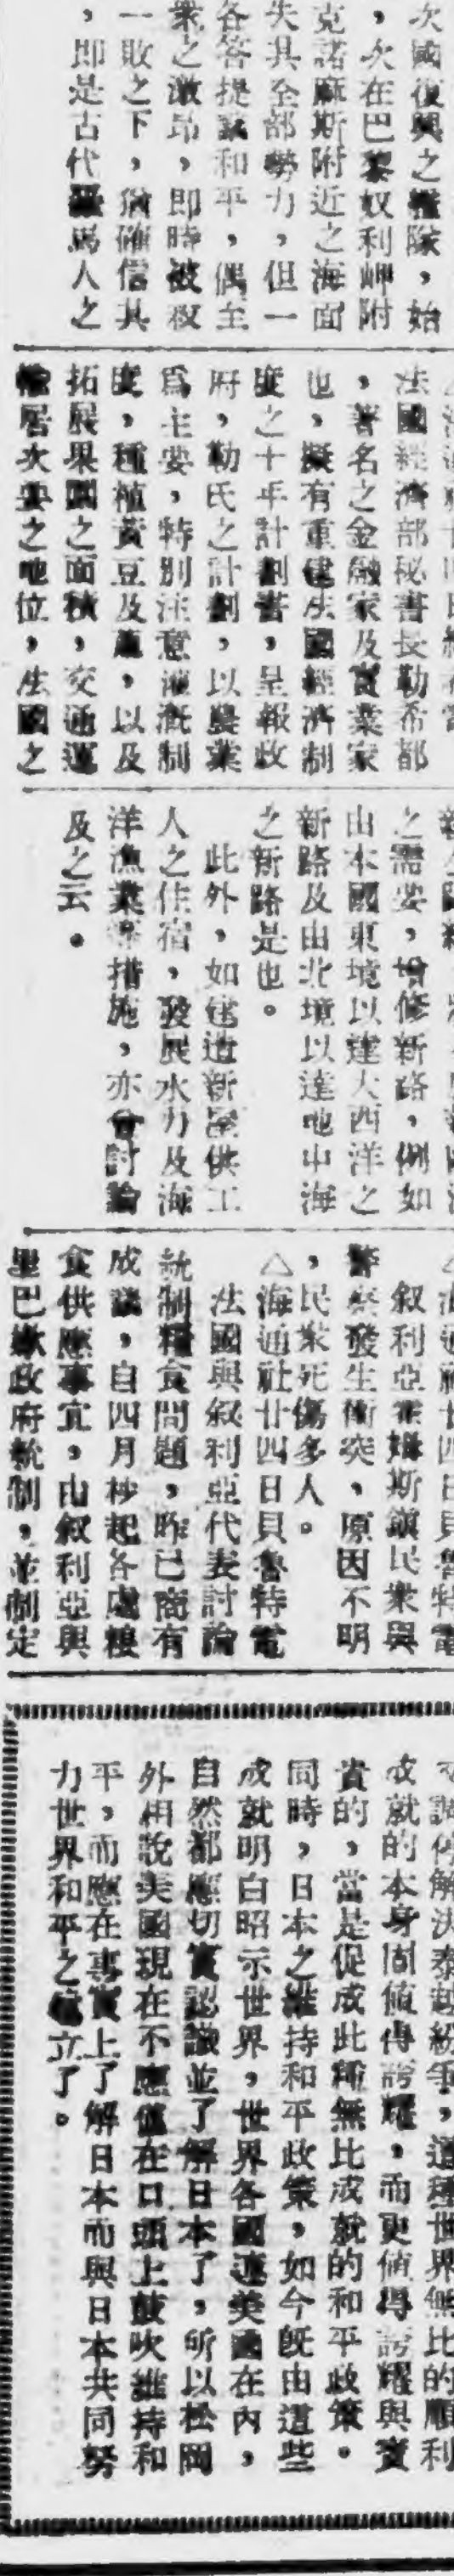 次國復興之艦隊，始
，次在巴黎奴利岬附
克諾麻斯附近之海面
失其全部勢力，但一
各答提議和平，偶至
眾之激昂，即時被殺
一敗之下，猶確信其
，即是古代羅馬人之
法國經濟部秘書長勒希都
，著名之金融家及實業家
也，擬有重建法國經濟制
度之十年計劃書，呈報政
府，勒氏之計劃，以農業
為主要，特別注意灌漑制
度，種植黃豆及，以及
拓展果園之面積，交通運
輸居次要之地位，法國之
之需要，增修新路，例如
由本國東境以達大西洋之
新路及由北境以達地中海
之新路是也。
此外，如建造新屋供工
人之住宿，發展水力及海
洋漁業等措施，亦曾討論
及之云。
△海通社廿四日貝魯特電
敘利亞霍姆斯鎮民衆與
警察發生衝突，原因不明
，民衆死傷多人。
△海通社廿四日貝魯特電
法國與敘利亞代表討論
統制糧食問題，昨已商有
成議，自四月杪起各處糧
食供應事宜，由敘利亞與
里巴嫩政府統制，並制定
又調停解決泰越紛爭，這種世界無比的順利
成就的本身固值得誇耀，而更值得誇耀與寶
貴的，當是促成此種無比成就的和平政策。
同時，日本之維持和平政策，如今旣由這些
成就明白昭示世界，世界各國連美國在內，
自然都應切實認識並了解日本了，所以松岡
外相說美國現在不應僅在口頭上鼓吹維持和
平，而應在事實上了解日本而與日本共同努
力世界和平之確立了。